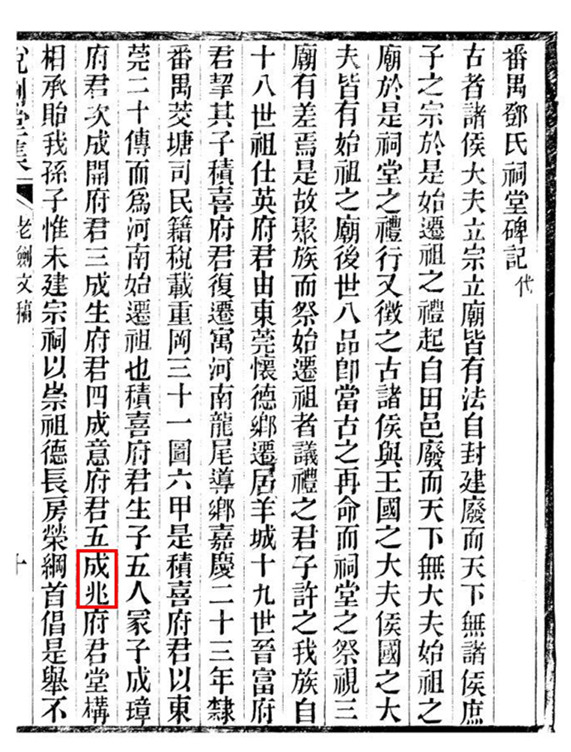 番禺鄧氏祠堂碑記代
古者諸侯大夫立宗立廟皆有法自封建廢而天下無諸侯庶
子之宗於是始遷祖之禮起自田邑廢而天下無大夫始祖之
廟於是祠堂之禮行又徵之古諸侯與王國之大夫侯國之大
夫皆有始祖之廟後世八品卽當古之再命而祠堂之祭視三
廟有差焉是故聚族而祭始遷祖者議禮之君子許之我族自
十八世祖仕英府君由東莞懷德鄉遷居羊城十九世晉富府
君挈其子積喜府君復遷寓河南龍尾導鄉嘉慶二十三年隸
番禺茭塘司民籍稅載重岡三十一圖六甲是積喜府君以東
莞二十傳而爲河南始遷祖也積喜府君生子五人冡子成璋
府君次成開府君三成生府君四成意府君五成兆府君堂構
相承貽我孫子惟未建宗祠以崇祖德長房榮綱首倡是舉不
說劍堂集
老劍文稿
十